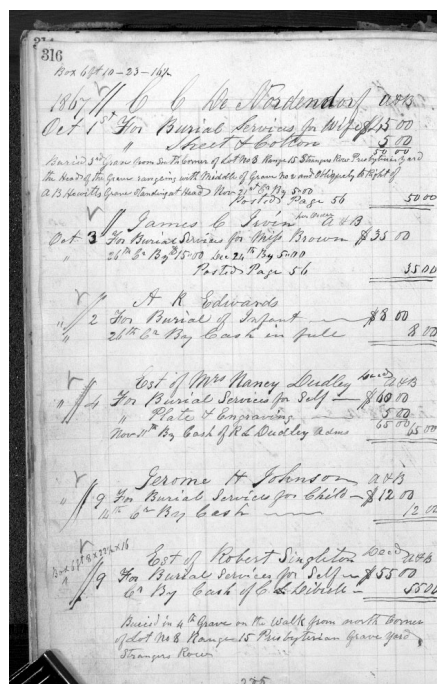 316
Box 6 ft 10-23-16 1/2
1867 C C De Nordendorf a&B
Oct 1st For Burial Services for Wife $45 00
" Sheet & Cotton 5 00
50 00
Buried 3rd Grave from South Corner of Lot No 8 Range 15 Strangers Row Presbyterian yard
the Head of the Grave ranging with Middle of Grave No 2 and Oppisety to Right of
A B Grave Standing at Head Nov 21st Cr By 5.00
Posted Page 56 50 00
James C Irvin a&B
Oct 3 For Burial Services for Miss Brown $35 00
26th Cr By $15.00 Dec 24th By 5.00
Posted Page 56 35 00
A R Edwards
" 2 For Burial of Infant $8 00
" 26th Cr By Cash in full 8 00
Est of Mrs Nancy Dudley Decd a&B
" 4 For Burial Services for Self $60 00
" Plate & Engraving 5 00
65 00
Nov 11th By Cash of R L Dudley Adms 65 00
Jerome H Johnson a&B
" 9 For Burial Services for Child $12 00
14th Cr By Cash 12 00
Box 6 ft 8 x 22 1/2 x 16
Est of Robert Singleton Decd a&B
" 9 For Burial Services for Self $55 00
Cr By Cash of C L 55 00
Buried in 4th Grave on the Walk from north Corner
of Lot No 8 Range 15 Presbyterian Grave yard
Strangers Row